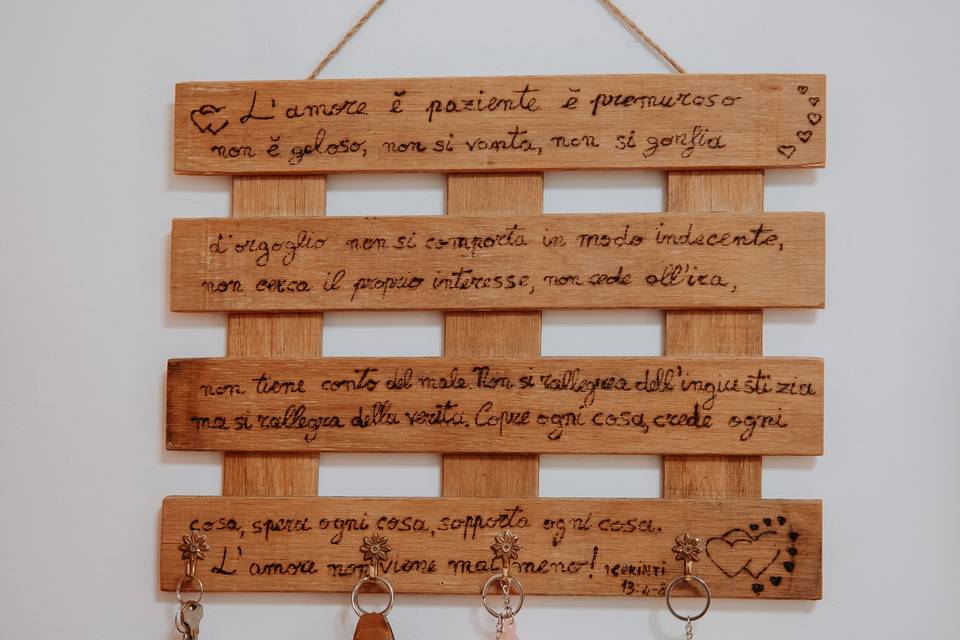 L'amore è paziente è premuroso
non è geloso, non si vanta, non si gonfia
d'orgoglio non si comporta in modo indecente,
non cerca il proprio interesse, non cede all'ira,
non tiene conto del male. Non si rallegrea dell'ingiustizia
ma si rallegra della verita. Copre ogni cosa, crede ogni
cosa, spera ogni cosa, sopporta ogni cosa.
L'amore non viene mai meno! 1CORINTI
13:4-8